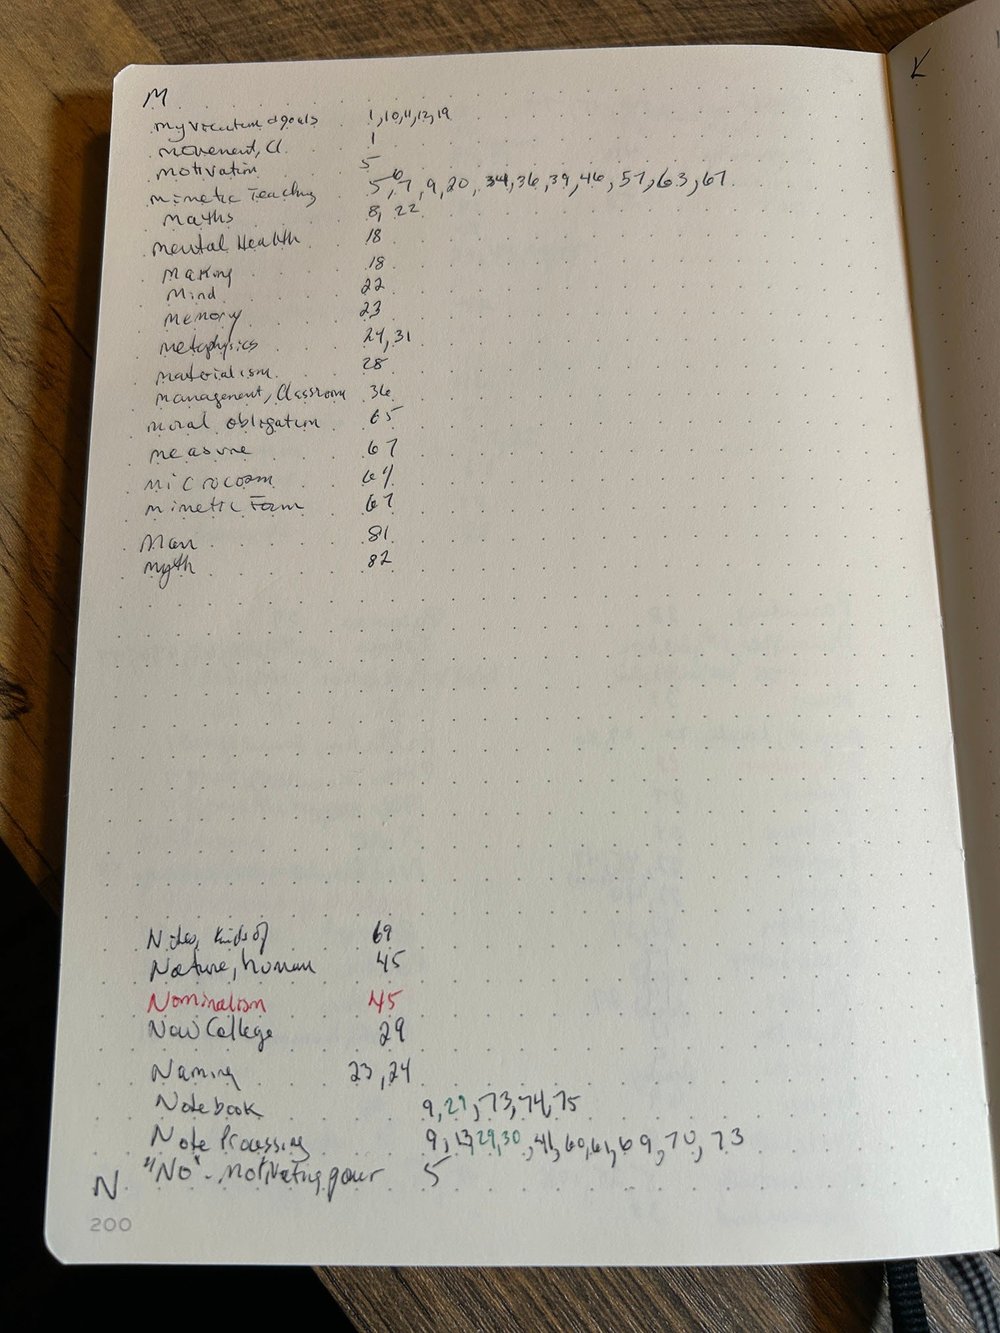 M
My vocation & goals 1, 10, 11, 12, 19
Movement, Cl. 1
Motivation 5
Mimetic Teaching 5, 6, 7, 9, 20, 34, 36, 39, 46, 57, 63, 67
Maths 8, 22
Mental Health 18
Making 18
Mind 22
Memory 23
Metaphysics 24, 31
Materialism 28
Management, Classroom 36
Moral obligation 65
Measure 67
Microcosm 64
Mimetic Form 67
Man 81
Myth 82
Notes, kinds of 69
Nature, human 45
Nominalism 45
College 29
Naming 23, 24
Notebook 9, 29, 73, 74, 75
Note Processing 9, 13, 29, 30, 41, 60, 61, 69, 70, 73
"No" - motivating power 5
N
200